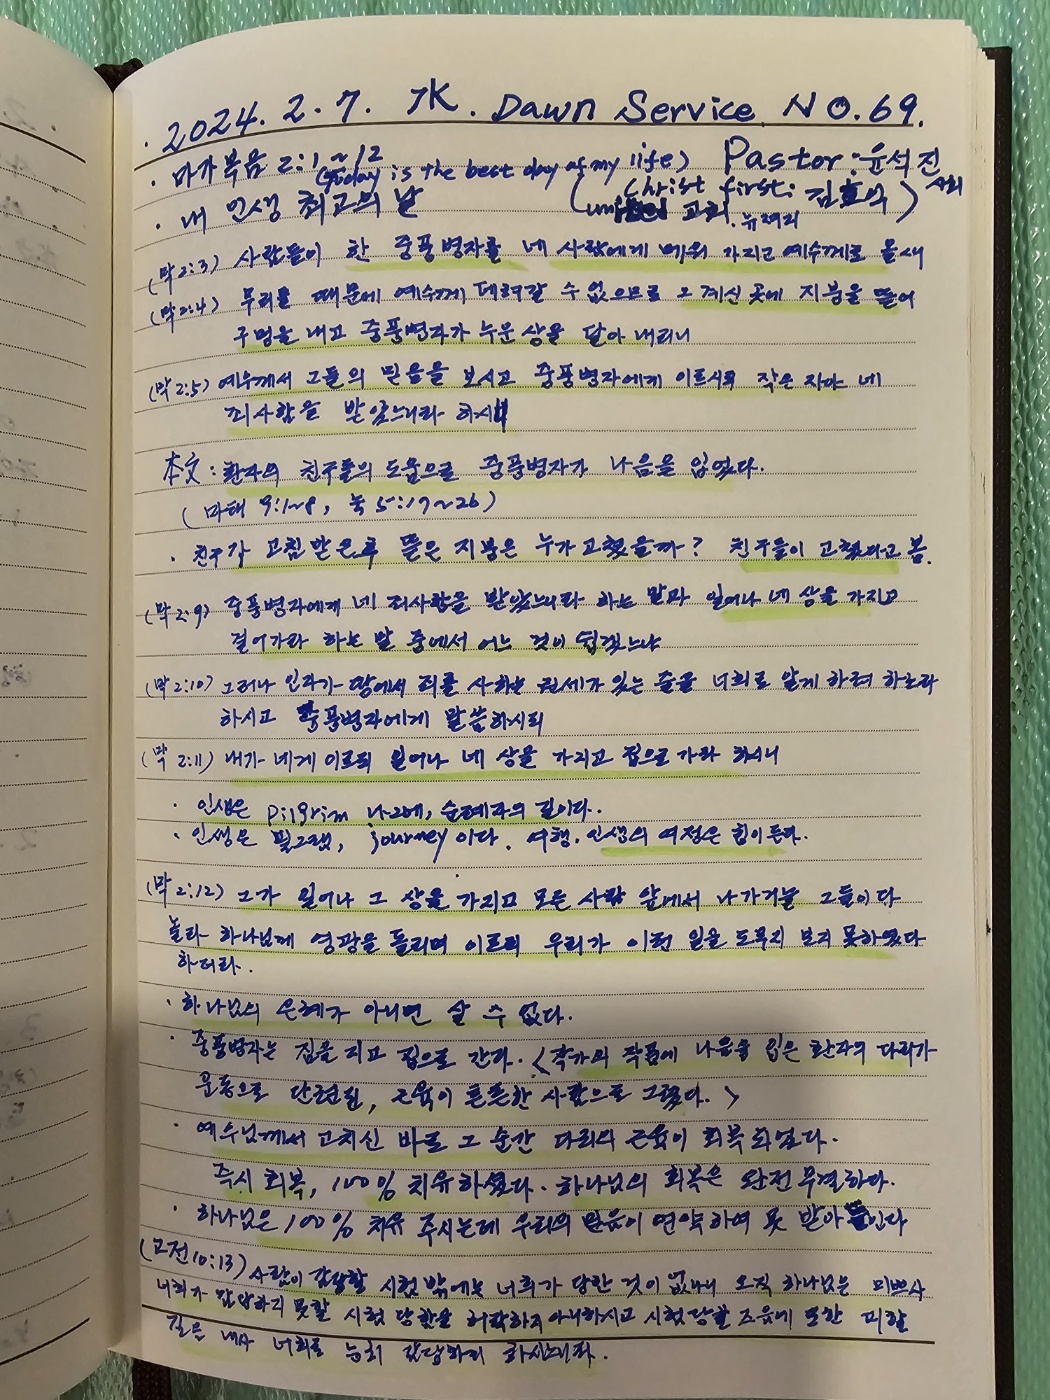 · 2024. 2. 7. JK. Dawn Service NO.69.
· 마가복음 2:1~12 (Today is the best day of my life) Pastor: 윤석진
· 내 인생 최고의 날 (Christ first: 김호억) 사회
united 교회. 유재리
(막2:3) 사람들이 한 중풍병자를 네 사람에게 메워 가지고 예수께로 올새
(막2:4) 무리들 때문에 예수께 데려갈 수 없으므로 그 계신 곳에 지붕을 뜯어
구멍을 내고 중풍병자가 누운 상을 달아 내리니
(막2:5) 예수께서 그들의 믿음을 보시고 중풍병자에게 이르시되 작은 자야 네
죄사함을 받았느니라 하시니
本文 : 환자의 친구들의 도움으로 중풍병자가 나음을 입었다.
(마태 9:1~8, 눅 5:17~26)
· 친구가 고침 받은 후 뜯은 지붕은 누가 고쳤을까? 친구들이 고쳤다고 봄.
(막2:9) 중풍병자에게 네 죄사함을 받았느니라 하는 말과 일어나 네 상을 가지고
걸어가라 하는 말 중에서 어느 것이 쉽겠느냐
(막2:10) 그러나 인자가 땅에서 죄를 사하는 권세가 있는 줄을 너희로 알게 하려 하노라
하시고 중풍병자에게 말씀하시되
(막2:11) 내가 네게 이르되 일어나 네 상을 가지고 집으로 가라 하시니
· 인생은 pilgrim 나그네, 순례자의 길이다.
· 인생은 필그램, journey 이다. 여행. 인생의 여정은 힘이 든다.
(막2:12) 그가 일어나 그 상을 가지고 모든 사람 앞에서 나가거늘 그들이 다
놀라 하나님께 영광을 돌리며 이르되 우리가 이런 일을 도무지 보지 못하였다
하더라.
· 하나님의 은혜가 아니면 살 수 없다.
· 중풍병자는 짐을 지고 집으로 간다. <작가의 작품에 나음을 입은 환자의 다리가
운동으로 단련된, 근육이 튼튼한 사람으로 그렸다.>
· 예수님께서 고치신 바로 그 순간 다리의 근육이 회복되었다.
즉시 회복, 100% 치유하셨다. 하나님의 회복은 완전 무결하다.
· 하나님은 100% 치유 주시는데 우리의 믿음이 연약하여 못 받아들인다
(고전10:13) 사람이 감당할 시험 밖에는 너희가 당한 것이 없나니 오직 하나님은 미쁘사
너희가 감당하지 못할 시험 당함을 허락하지 아니하시고 시험 당할 즈음에 또한 피할
길을 내사 너희로 능히 감당하게 하시느니라.